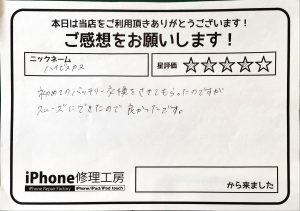 本日は当店をご利用頂きありがとうございます！
ご感想をお願いします！
ニックネーム
ハイビスカス
星評価 ☆☆☆☆☆
初めてのバッテリー交換をさせてもらったのですが
スムーズにできたので良かったです。
iPhone修理工房
iPhone Repair Factory iPhone/iPad/iPod touch
から来ました